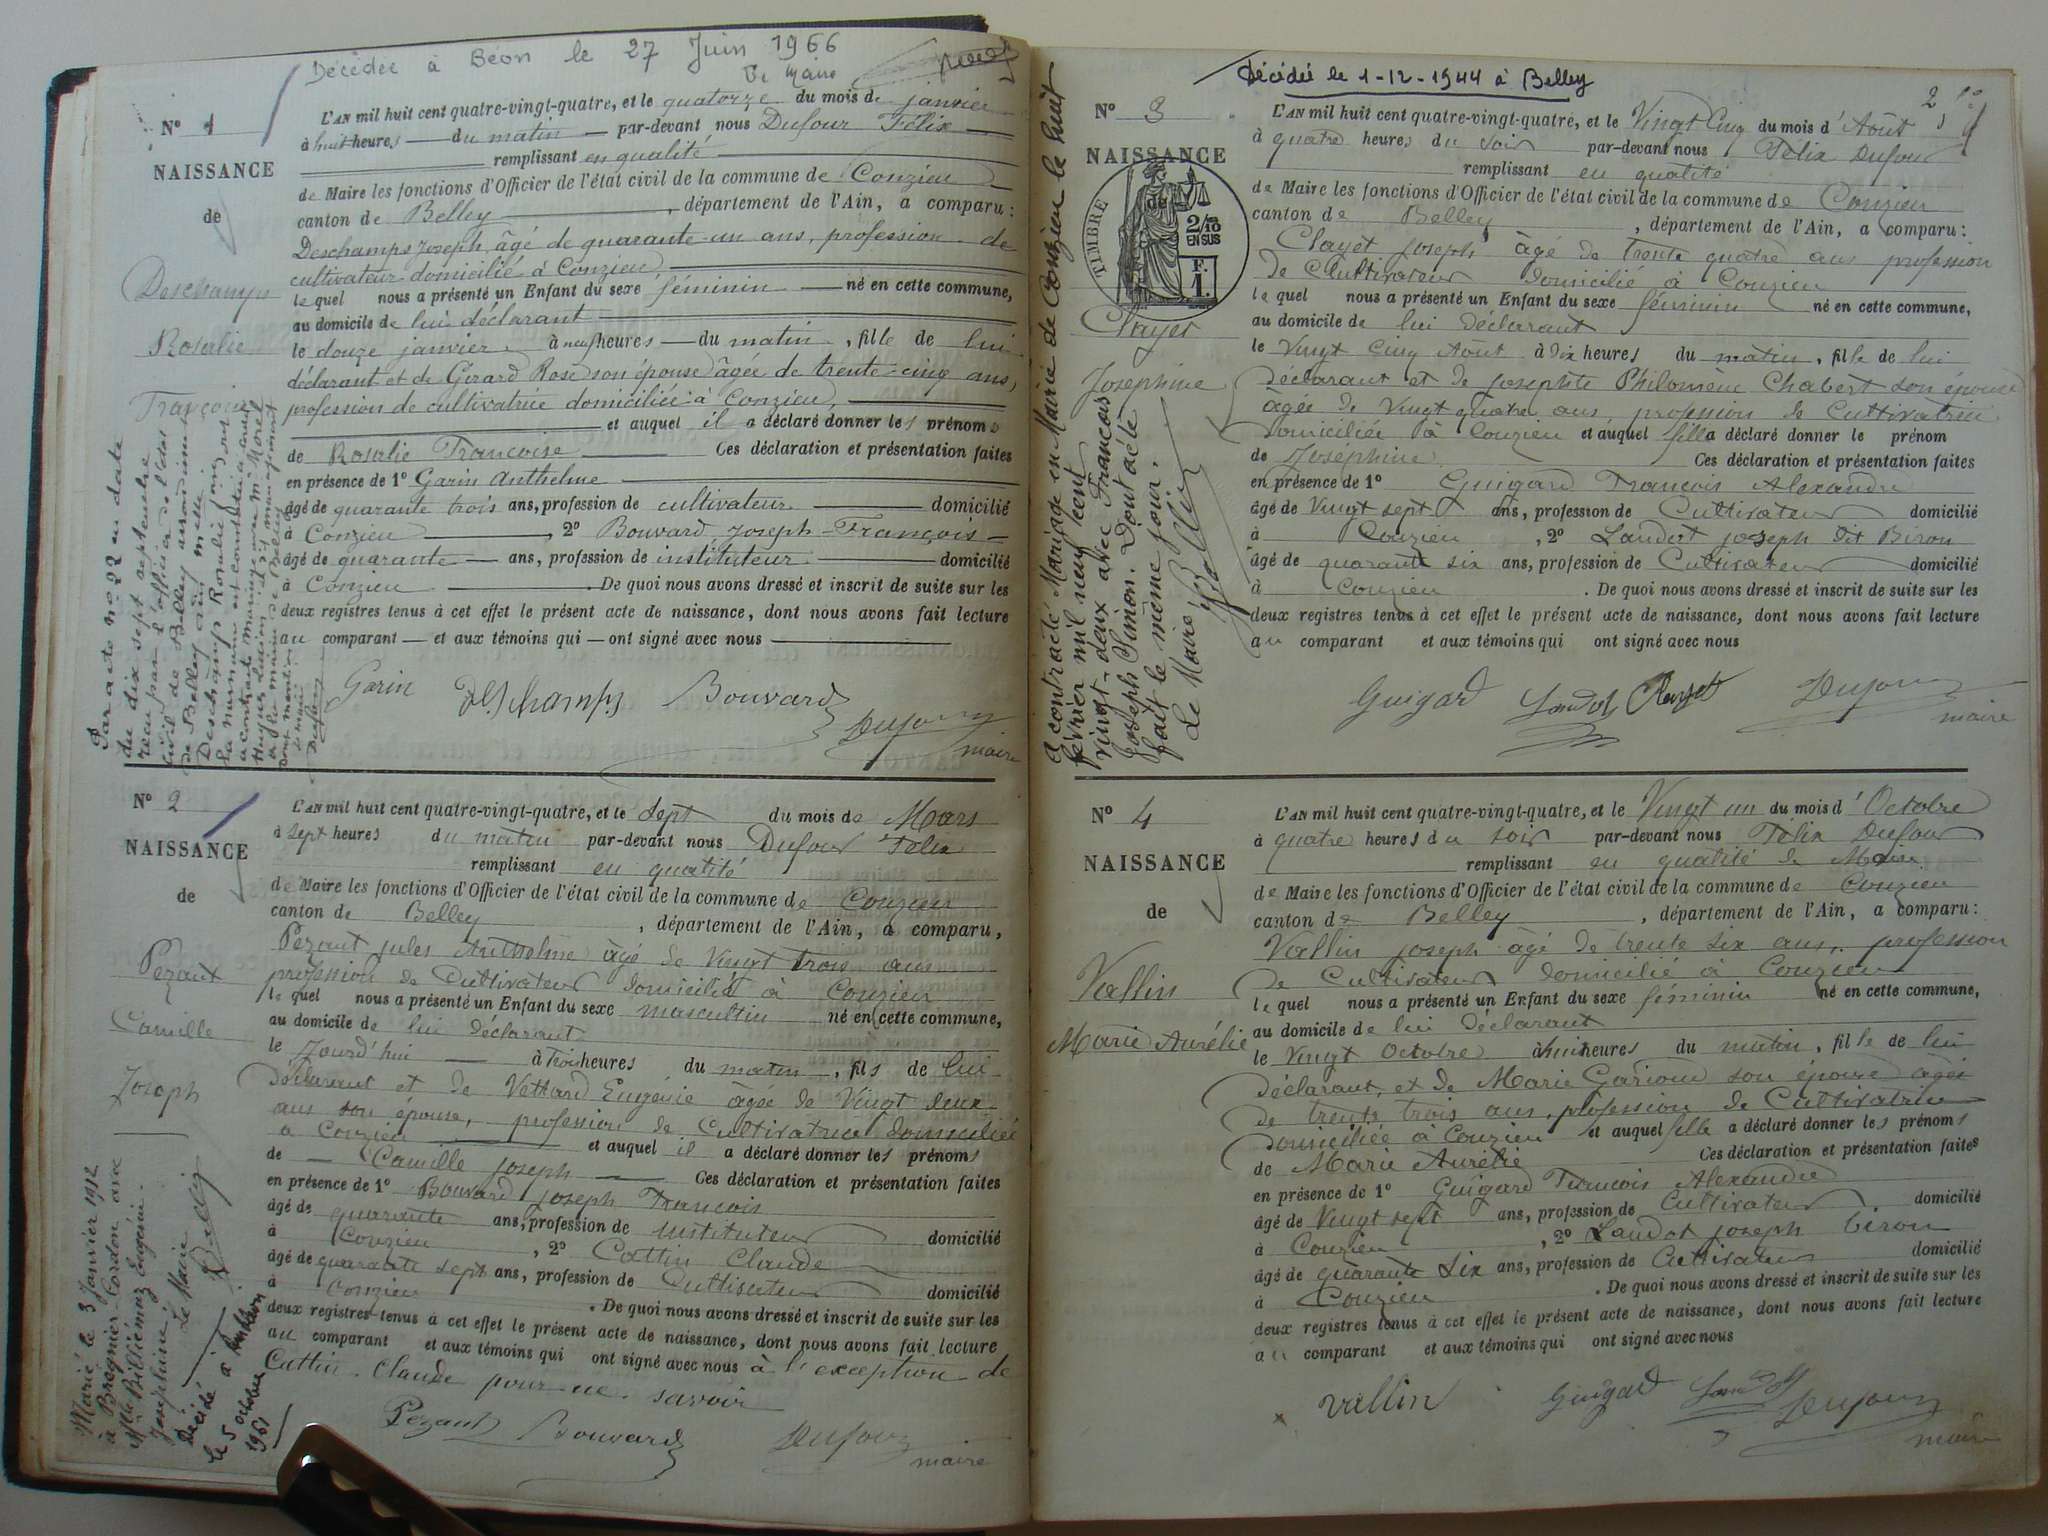 Décédée à Béon le 27 Juin 1966
Le Maire
Nº 1
NAISSANCE
de
Deschamps
Rosalie
Françoise
L'AN mil huit cent quatre-vingt-quatre, et le quatorze du mois de janvier
à huit heures du matin par-devant nous Dufour Félix
remplissant en qualité
de Maire les fonctions d'Officier de l'état civil de la commune de Conzieu
canton de Belley, département de l'Ain, a comparu :
Deschamps Joseph, âgé de quarante-un ans, profession de
cultivateur domicilié à Conzieu,
lequel nous a présenté un Enfant du sexe féminin né en cette commune,
au domicile de lui déclarant
le douze janvier à neuf heures du matin, fille de lui
déclarant et de Girard Rose son épouse âgée de trente-cinq ans,
profession de cultivatrice domiciliée à Conzieu,
et auquel il a déclaré donner les prénoms
de Rosalie Françoise Ces déclaration et présentation faites
en présence de 1º Garin Anthelme
âgé de quarante trois ans, profession de cultivateur domicilié
à Conzieu, 2º Bouvard Joseph-François
âgé de quarante ans, profession de instituteur domicilié
à Conzieu. De quoi nous avons dressé et inscrit de suite sur les
deux registres tenus à cet effet le présent acte de naissance, dont nous avons fait lecture
au comparant et aux témoins qui ont signé avec nous
Garin Deschamps Bouvard
Dufour
maire
Par acte nº 22 en date
du dix sept septembre
reçu par l'officier de l'état
civil de Belley arrondissement
de Belley
Deschamps Rosalie Françoise
Nº 2
NAISSANCE
de
Pezant
Camille
Joseph
L'AN mil huit cent quatre-vingt-quatre, et le Sept du mois de Mars
à sept heures du matin par-devant nous Dufour Félix
remplissant en qualité
de Maire les fonctions d'Officier de l'état civil de la commune de Conzieu
canton de Belley, département de l'Ain, a comparu,
Pezant Jules Anthelme âgé de Vingt trois ans
profession de Cultivateur domicilié à Conzieu
lequel nous a présenté un Enfant du sexe masculin né en cette commune,
au domicile de lui déclarant
le Jourd'hui à trois heures du matin, fils de lui
déclarant et de Vettard Eugénie âgée de Vingt deux
ans son épouse, profession de Cultivatrice domiciliée
à Conzieu et auquel il a déclaré donner les prénoms
de Camille Joseph Ces déclaration et présentation faites
en présence de 1º Bouvard Joseph François
âgé de quarante ans, profession de Instituteur domicilié
à Conzieu, 2º Cattin Claude
âgé de quarante sept ans, profession de Cultivateur domicilié
à Conzieu. De quoi nous avons dressé et inscrit de suite sur les
deux registres tenus à cet effet le présent acte de naissance, dont nous avons fait lecture
au comparant et aux témoins qui ont signé avec nous à l'exception de
Cattin Claude pour ne savoir
Pezant Bouvard Dufour
maire
Marié le 3 Janvier 1912
à Brégnier-Cordon avec
Mlle Billiémaz Eugénie
Joséphine.
Le Maire
Décédé à Ambléon
le 5 octobre
1961
Décédée le 1-12-1944 à Belley
2
Nº 3
NAISSANCE
de
TIMBRE
2/10
EN SUS
F.
1.
Clayet
Josephine
L'AN mil huit cent quatre-vingt-quatre, et le Vingt Cinq du mois d'Août
à quatre heures du soir par-devant nous Félix Dufour
remplissant en qualité
de Maire les fonctions d'Officier de l'état civil de la commune de Conzieu
canton de Belley, département de l'Ain, a comparu :
Clayet Joseph âgé de trente quatre ans profession
de Cultivateur domicilié à Conzieu
lequel nous a présenté un Enfant du sexe féminin né en cette commune,
au domicile de lui déclarant
le Vingt Cinq Août à dix heures du matin, fille de lui
déclarant et de Josephte Philomène Chabert son épouse
âgée de Vingt quatre ans, profession de Cultivatrice
domiciliée à Conzieu et auquel fille a déclaré donner le prénom
de Josephine Ces déclaration et présentation faites
en présence de 1º Guigard François Alexandre
âgé de Vingt sept ans, profession de Cultivateur domicilié
à Conzieu, 2º Landot Joseph dit Biron
âgé de quarante six ans, profession de Cultivateur domicilié
à Conzieu. De quoi nous avons dressé et inscrit de suite sur les
deux registres tenus à cet effet le présent acte de naissance, dont nous avons fait lecture
au comparant et aux témoins qui ont signé avec nous
Guigard Landot Clayet Dufour
maire
A contracté Mariage en Mairie de Conzieu le huit
février mil neuf cent
vingt-deux avec François
Joseph Simon. Dont acte
fait le même jour.
Le Maire
Nº 4
NAISSANCE
de
Vallin
Marie Aurélie
L'AN mil huit cent quatre-vingt-quatre, et le Vingt un du mois d'Octobre
à quatre heures du soir par-devant nous Félix Dufour
remplissant en qualité de Maire
de Maire les fonctions d'Officier de l'état civil de la commune de Conzieu
canton de Belley, département de l'Ain, a comparu :
Vallin Joseph âgé de trente six ans, profession
de Cultivateur domicilié à Conzieu
lequel nous a présenté un Enfant du sexe féminin né en cette commune,
au domicile de lui déclarant
le Vingt Octobre à huit heures du matin, fille de lui
déclarant, et de Marie Garioud son épouse âgée
de trente trois ans, profession de Cultivatrice
domiciliée à Conzieu et auquel fille a déclaré donner les prénoms
de Marie Aurélie Ces déclaration et présentation faites
en présence de 1º Guigard François Alexandre
âgé de Vingt sept ans, profession de Cultivateur domicilié
à Conzieu, 2º Landot Joseph Biron
âgé de quarante six ans, profession de Cultivateur domicilié
à Conzieu. De quoi nous avons dressé et inscrit de suite sur les
deux registres tenus à cet effet le présent acte de naissance, dont nous avons fait lecture
au comparant et aux témoins qui ont signé avec nous
Vallin Guigard Landot Dufour
maire